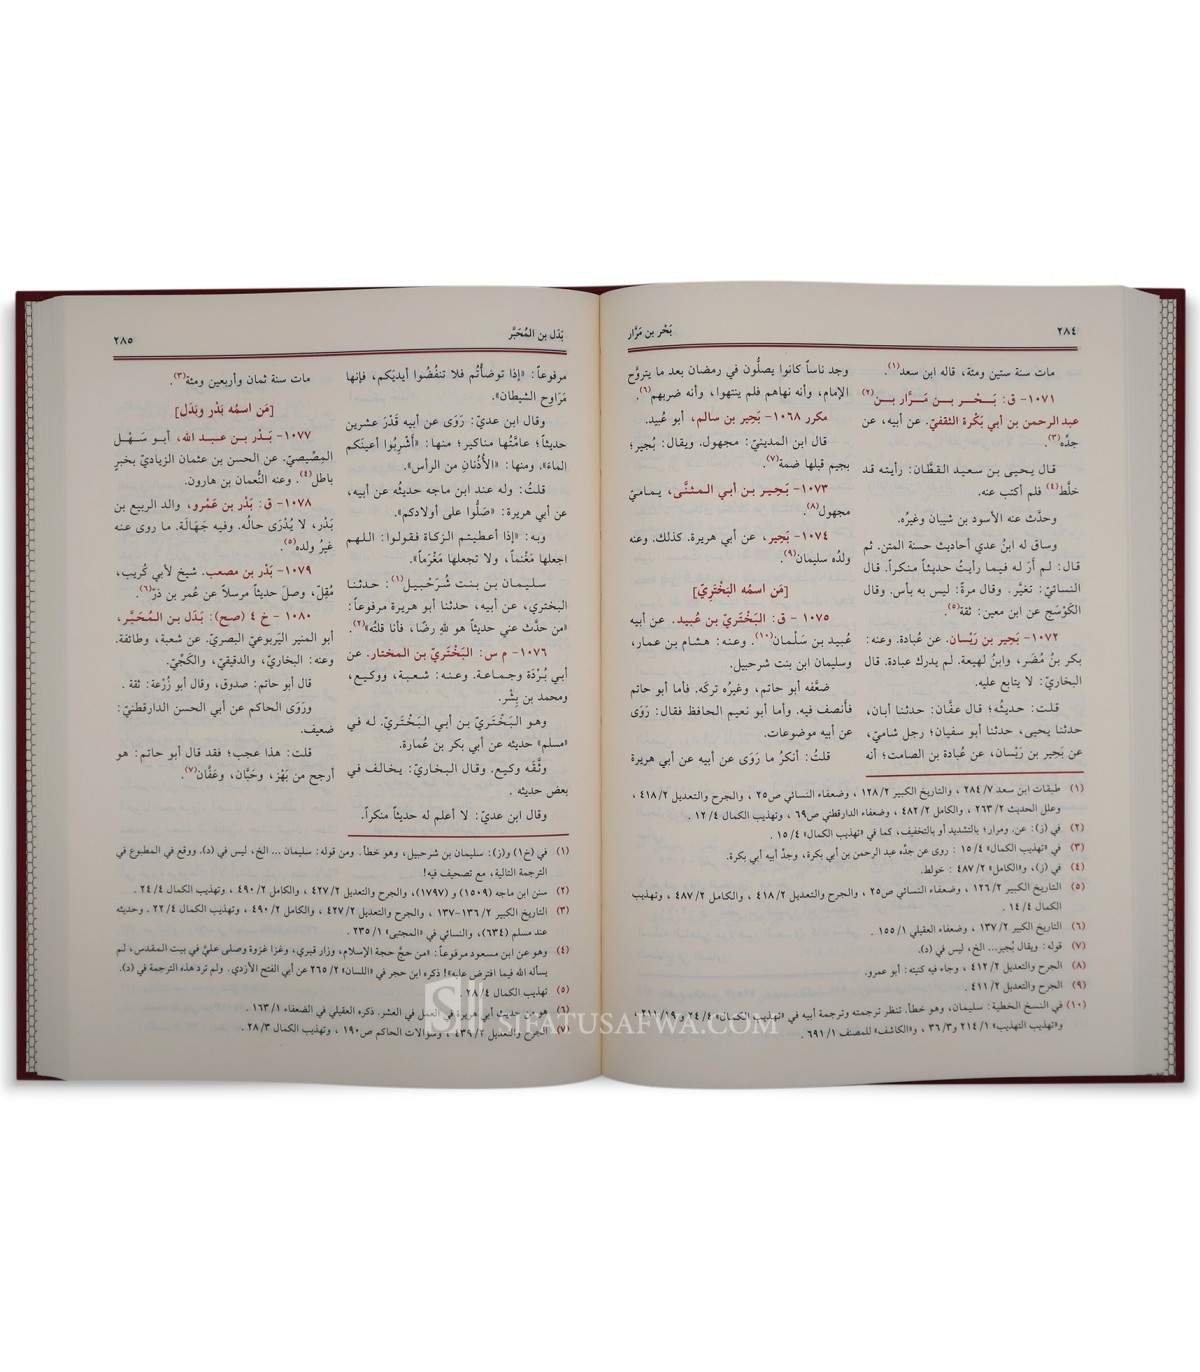 ٢٨٤
بَحْر بن مَرَّار
مات سنة ستين ومئة، قاله ابن سعد(١).
١٠٧١- ق: بَـحْـر بـن مَـرَّار بـن(٢)
عبد الرحمن بن أبي بَكْرة الثقفيّ. عن أبيه، عن
جدِّه(٣).
قال يحيى بن سعيد القطَّان: رأيته قد
خلَّط(٤) فلم أكتب عنه.
وحدَّث عنه الأسود بن شيبان وغيرُه.
وساق له ابنُ عدي أحاديث حسنة المتن. ثم
قال: لـم أرَ لـه فيـما رأيتُ حديثاً منكراً. قال
النسائيّ: تغيَّر. وقال مرةً: ليس به بأس. وقال
الكَوْسَج عن ابن معين: ثقة(٥).
١٠٧٢- بَحِير بن رَيْسان. عن عُبادة. وعنه:
بكر بنُ مُضَر، وابنُ لهيعة. لم يدرك عبادة. قال
البخاريّ: لا يتابع عليه.
قلت: حديثُه؛ قال عفَّان: حدثنا أبان،
حدثنا يحيى، حدثنا أبو سفيان؛ رجل شاميّ،
عن بَحِير بن رَيْسان، عن عُبادة بن الصامت؛ أنه
وجد ناساً كانوا يصلُّون في رمضان بعد ما يتروَّح
الإمام، وأنه نهاهم فلم ينتهوا، وأنه ضربهم(٦).
مكرر ١٠٦٨- بَحِير بن سالم، أبو عُبيد.
قال ابن المدينيّ: مجهول. ويقال: بُجير؛
بجيم قبلها ضمة(٧).
١٠٧٣- بَـحِـيـر بـن أبـي الـمـثـنَّـى، يـمـامـيّ
مجهول(٨).
١٠٧٤- بَحِير، عن أبي هريرة. كذلك. وعنه
ولدُه سليمان(٩).
[مَن اسمُه البَخْتَرِيّ]
١٠٧٥- ق: البَخْتَريّ بن عُبيد. عن أبيه
عُبيد بن سَلْمان(١٠). وعنه: هشام بن عمار،
وسليمان ابن بنت شرحبيل.
ضعَّفه أبو حاتم، وغيرُه تركَه. فأما أبو حاتم
فأنصف فيه. وأما أبو نعيم الحافظ فقال: رَوَى
عن أبيه موضوعات.
قلتُ: أنكرُ ما رَوَى عن أبيه عن أبي هريرة
(١) طبقات ابن سعد ٢٨٤/٧ ، والتاريخ الكبير ١٢٨/٢ ، وضعفاء النسائي ص٢٥ ، والجرح والتعديل ٤١٨/٢ ،
وعلل الحديث ٢٦٣/٢ ، والكامل ٤٨٢/٢ ، وضعفاء الدارقطني ص٦٩ ، وتهذيب الكمال ١٢/٤ .
(٢) في (ز): عن. ومرار؛ بالتشديد أو بالتخفيف، كما في «تهذيب الكمال» ١٥/٤ .
(٣) في «تهذيب الكمال» ١٥/٤ : روى عن جدِّه عبد الرحمن بن أبي بكرة، وجدِّ أبيه أبي بكرة.
(٤) في (ز)، و«الكامل» ٤٨٧/٢ : خولط.
(٥) التاريخ الكبير ١٢٦/٢ ، وضعفاء النسائي ص٢٥ ، والجرح والتعديل ٤١٨/٢ ، والكامل ٤٨٧/٢ ، وتهذيب
الكمال ١٤/٤ .
(٦) التاريخ الكبير ١٣٧/٢ ، وضعفاء العقيلي ١٥٥/١ .
(٧) قوله: ويقال بُجير... الخ، ليس في (د).
(٨) الجرح والتعديل ٤١٢/٢ ، وجاء فيه كنيته: أبو عمرو.
(٩) الجرح والتعديل ٤١١/٢ .
(١٠) في النسخ الخطية: سليمان، وهو خطأ. تنظر ترجمته وترجمة أبيه في «تهذيب الكمال» ٢٤/٤ و٢١١/١٩ ،
و«تهذيب التهذيب» ٢١٤/١ و٣٦/٣ ، و«الكاشف» للمصنف ٦٩١/١ .
بَدَل بن المُحَبَّر
٢٨٥
مرفوعاً: «إذا توضأتُم فلا تنفُضُوا أيديَكم، فإنها
مَرَاوح الشيطان».
وقال ابن عديّ: رَوَى عن أبيه قَدْرَ عشرين
حديثاً؛ عامَّتُها مناكير؛ منها: «أَشْرِبُوا أعينَكم
الماءَ»، ومنها: «الأُذُنانِ من الرأس».
قلتُ: وله عند ابن ماجه حديثُه عن أبيه،
عن أبي هريرة: «صَلُّوا على أولادكم».
وبه: «إذا أعطيتم الزكاة فقولوا: اللهم
اجعلها مَغْنَماً، ولا تجعلها مَغْرَماً».
سليمان بن بنت شُرَحْبيل(١): حدثنا
البختري، عن أبيه، حدثنا أبو هريرة مرفوعاً:
«من حدَّث عني حديثاً هو للهِ رضًا، فأنا قلتُه»(٢).
١٠٧٦- م س: البَخْتَريّ بن المختار. عن
أبي بُرْدَة وجماعة. وعنه: شعبة، ووكيع،
ومحمد بن بِشْر.
وهـو الـبَـخْـتَـريّ بـن أبـي الـبَـخْـتَـريّ. لـه في
«مسلم» حديثه عن أبي بكر بن عُمارة.
وثَّقَه وكيع. وقال البخاريّ: يخالف في
بعض حديثه .
وقال ابن عديّ: لا أعلم له حديثاً منكراً.
مات سنة ثمان وأربعين ومئة(٣).
[مَن اسمُه بَدْر وبَدَل]
١٠٧٧- بَـدْر بـن عـبـد الله، أبـو سَـهْـل
المِصِّيصيّ. عن الحسن بن عثمان الزياديّ بخبرٍ
باطل(٤). وعنه النُّعمان بن هارون.
١٠٧٨- ق: بَدْر بن عَمْرو، والد الربيع بن
بَدْر، لا يُدْرَى حالُه. وفيه جَهَالَة. ما روى عنه
غيرُ ولده(٥).
١٠٧٩- بَدْر بن مصعب. شيخ لأبي كُريب،
مُقِلّ، وصلَ حديثاً مرسلاً عن عُمر بن ذرّ(٦).
١٠٨٠ - خ ٤ (صح): بَدَل بن المُحَبَّر،
أبو المنير اليَربوعيّ البصريّ. عن شعبة، وطائفة.
وعنه: البخاريّ، والدقيقيّ، والكَجِّيّ.
قال أبو حاتم: صدوق، وقال أبو زُرْعة: ثقة .
ورَوَى الحاكم عن أبي الحسن الدارقطنيّ:
ضعيف.
قلت: هذا عجب؛ فقد قال أبو حاتم: هو
أرجح من بَهْز، وحَبَّان، وعَفَّان(٧).
(١) في (خ١) و(ز): سليمان بن شرحبيل، وهو خطأ. ومن قوله: سليمان ... الخ، ليس في (د). ووقع في المطبوع في
الترجمة التالية، مع تصحيف فيه!
(٢) سنن ابن ماجه (١٥٠٩) و (١٧٩٧)، والجرح والتعديل ٤٢٧/٢ ، والكامل ٤٩٠/٢ ، وتهذيب الكمال ٢٤/٤ .
(٣) التاريخ الكبير ١٣٦/٢-١٣٧ ، والجرح والتعديل ٤٢٧/٢ ، والكامل ٤٩٠/٢ ، وتهذيب الكمال ٢٢/٤ . وحديثه
عند مسلم (٦٣٤)، والنسائي في «المجتبى» ٢٣٥/١ .
(٤) وهو عن ابن مسعود مرفوعاً: «من حجَّ حجة الإسلام، وزار قبري، وغزا غزوة وصلى عليَّ في بيت المقدس، لم
يسأله الله فيما افترض عليه»! ذكره ابن حجر في «اللسان» ٢٦٥/٢ عن أبي الفتح الأزدي . ولم ترد هذه الترجمة في (د).
(٥) تهذيب الكمال ٢٨/٤ .
(٦) وهو من حديث أبي هريرة في العمل في العشر. ذكره العقيلي في الضعفاء ١٦٣/١ .
(٧) الجرح والتعديل ٤٣٩/٢ ، وسؤالات الحاكم ص١٩٠ ، وتهذيب الكمال ٢٨/٣ .
SIFATUSAFWA.COM